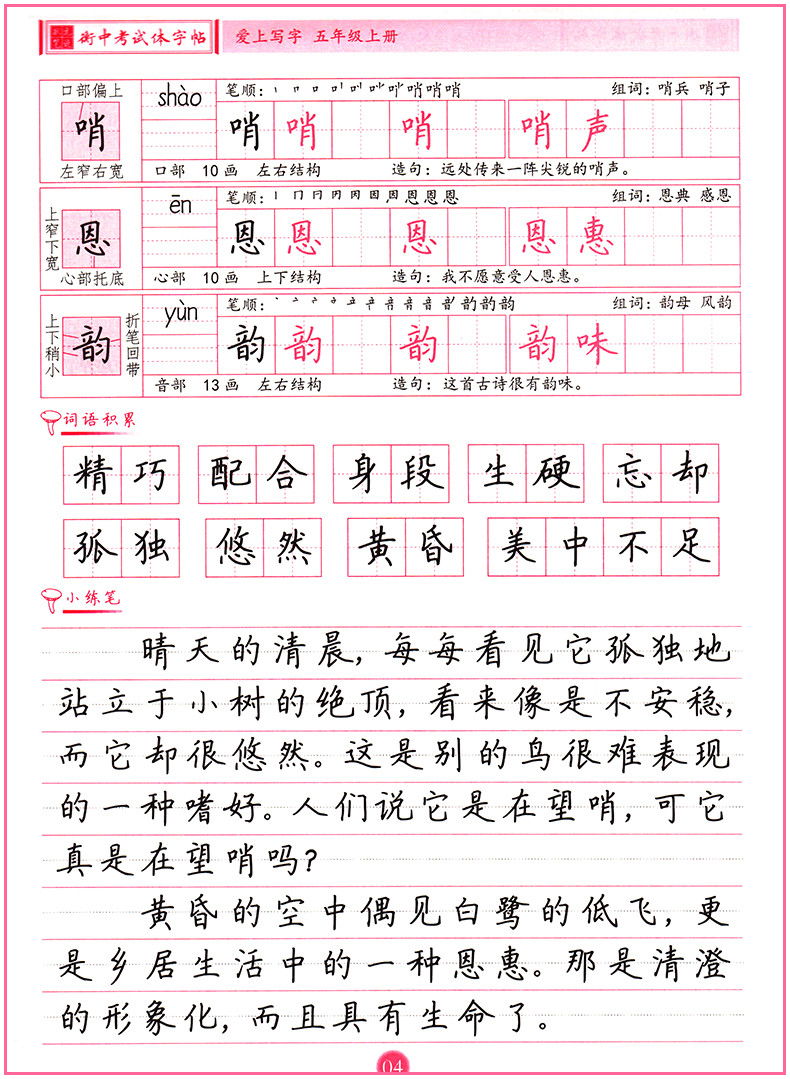 衡中考试体字帖 爱上写字 五年级上册
口部偏上 shào 笔顺： 组词：哨兵 哨子
哨 哨 哨 哨 哨 声
左窄右宽 口部 10画 左右结构 造句：远处传来一阵尖锐的哨声。
上窄下宽 ēn 笔顺： 组词：恩典 感恩
恩 恩 恩 恩 恩 惠
心部托底 心部 10画 上下结构 造句：我不愿意受人恩惠。
上下稍小 折笔回带 yùn 笔顺： 组词：韵母 风韵
韵 韵 韵 韵 韵 味
音部 13画 左右结构 造句：这首古诗很有韵味。
词语积累
精巧 配合 身段 生硬 忘却
孤独 悠然 黄昏 美中不足
小练笔
晴天的清晨，每每看见它孤独地
站立于小树的绝顶，看来像是不安稳，
而它却很悠然。这是别的鸟很难表现
的一种嗜好。人们说它是在望哨，可它
真是在望哨吗？
黄昏的空中偶见白鹭的低飞，更
是乡居生活中的一种恩惠。那是清澄
的形象化，而且具有生命了。
04